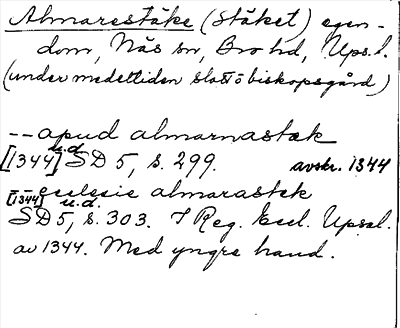 Almarestäke (Stäket) egen-
dom, Näs sn, Bro hd, Ups. l.
(under medeltiden slott o biskopsgård)
-- apud almarnastæk
[1344] u.d. SD 5, s. 299. avskr. 1344
-- ecclesie almarastæk
[1344] u.d.
SD 5, s. 303. I Reg. Eccl. Upsal.
av 1344. Med yngre hand.